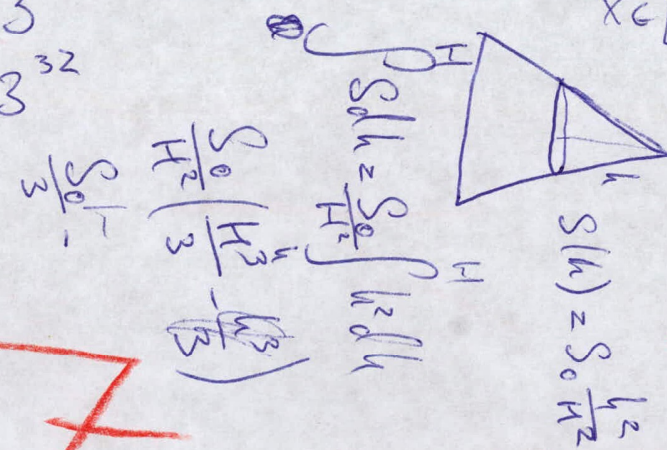 3
3^32
x ∈
h
S(h) = S₀ h²/H²
∫₀^H S dh = S₀/H² ∫^H h² dh
S₀/H² ( H³/3 -
S₀/3
7